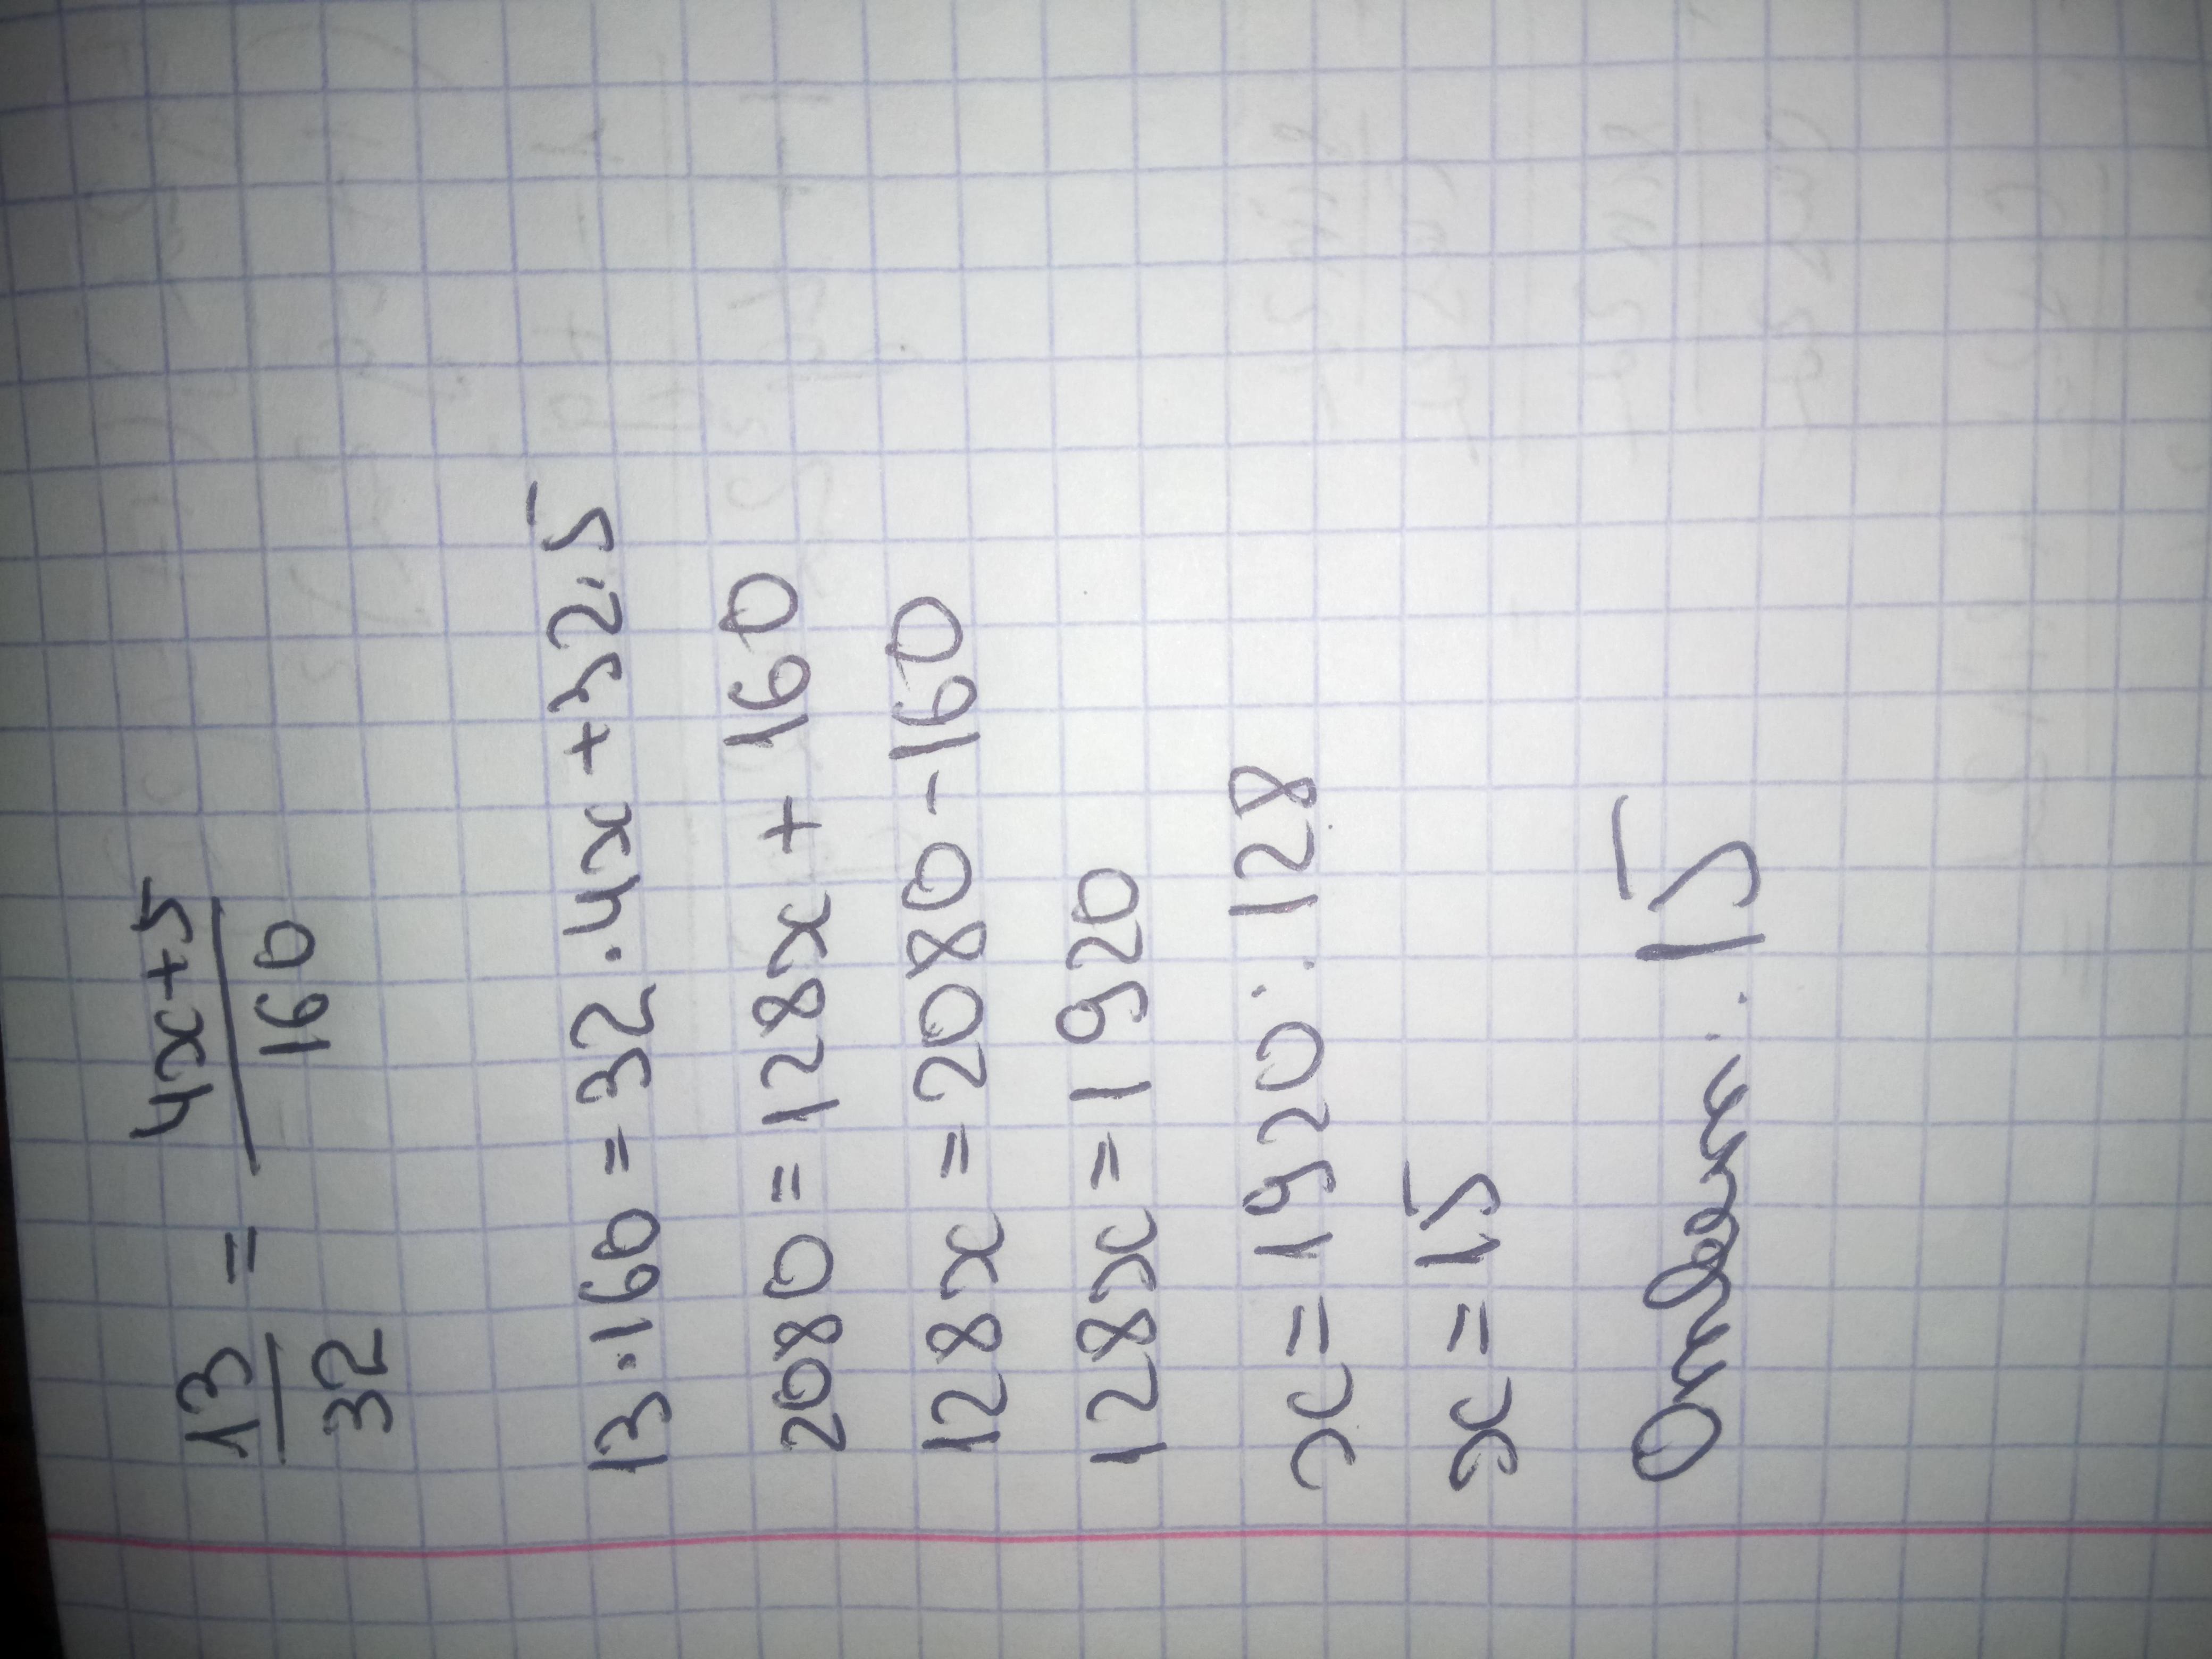 13/32 = 4x+5/160
13·160=32·4x+32·5
2080=128x+160
128x=2080-160
128x=1920
x=1920:128
x=15
Ответ: 15